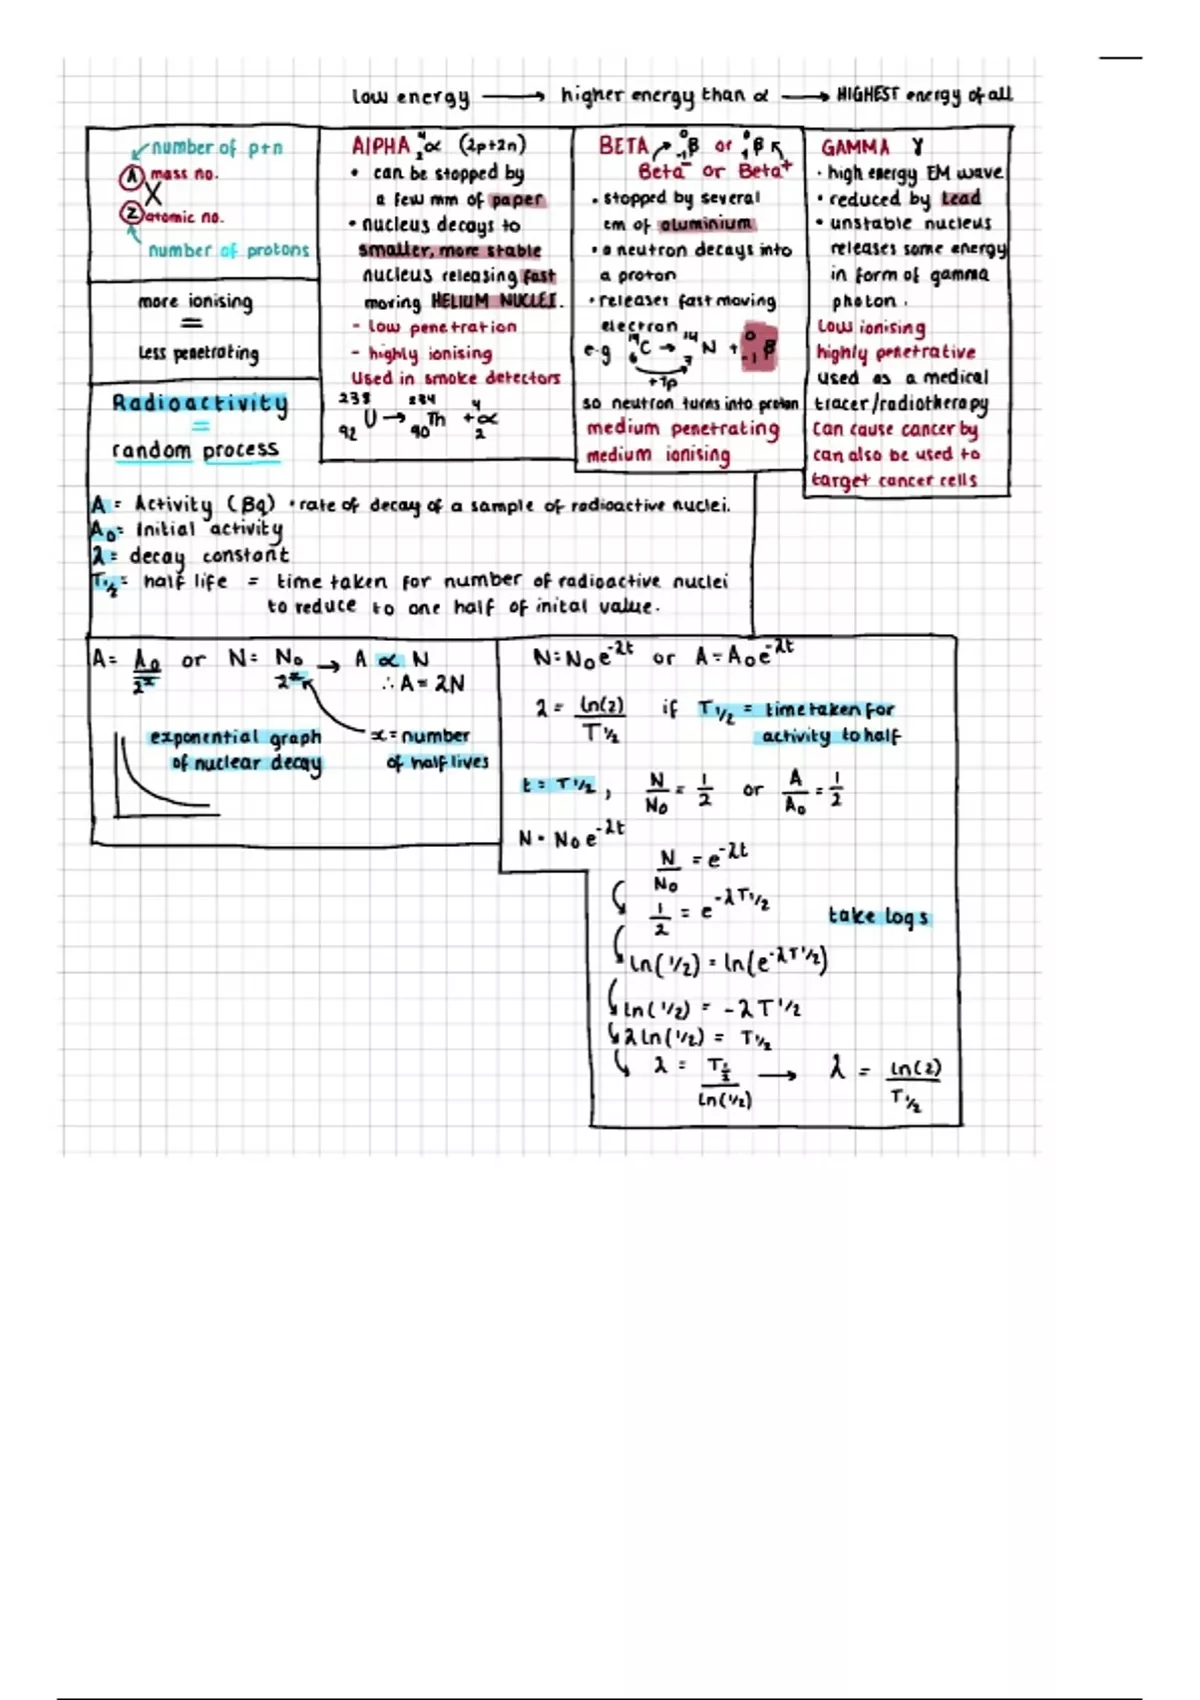 low energy → higher energy than α → HIGHEST energy of all
number of p+n
A mass no.
X
Z atomic no.
number of protons
more ionising
=
less penetrating
Radioactivity
=
random process
ALPHA ⁴₂α (2p+2n)
• can be stopped by
a few mm of paper
• nucleus decays to
smaller, more stable
nucleus releasing fast
moving HELIUM NUCLEI.
- low penetration
- highly ionising
Used in smoke detectors
²³⁸₉₂U → ²³⁴₉₀Th + ⁴₂α
BETA ⁰₋₁β or ⁰₁β
Beta⁻ or Beta⁺
• stopped by several
cm of aluminium
• a neutron decays into
a proton
• releases fast moving
electron
e.g ¹⁴₆C → ¹⁴₇N + ⁰₋₁β
+1p
so neutron turns into proton
medium penetrating
medium ionising
GAMMA γ
• high energy EM wave
• reduced by lead
• unstable nucleus
releases some energy
in form of gamma
photon.
Low ionising
highly penetrative
used as a medical
tracer/radiotherapy
Can cause cancer by
can also be used to
target cancer cells
A = Activity (Bq) • rate of decay of a sample of radioactive nuclei.
A₀ = Initial activity
λ = decay constant
T½ = half life = time taken for number of radioactive nuclei
to reduce to one half of inital value.
A = A₀/2ˣ or N = N₀/2ˣ → A ∝ N
∴ A = λN
exponential graph
of nuclear decay
x = number
of half lives
N = N₀e^-λt or A = A₀e^-λt
λ = ln(2)/T½ if T½ = time taken for
activity to half
t = T½, N/N₀ = 1/2 or A/A₀ = 1/2
N = N₀e^-λt
N/N₀ = e^-λt
1/2 = e^-λT½ take logs
ln(1/2) = ln(e^-λT½)
ln(1/2) = -λT½
λln(1/2) = T½
λ = T½/ln(1/2) → λ = ln(2)/T½